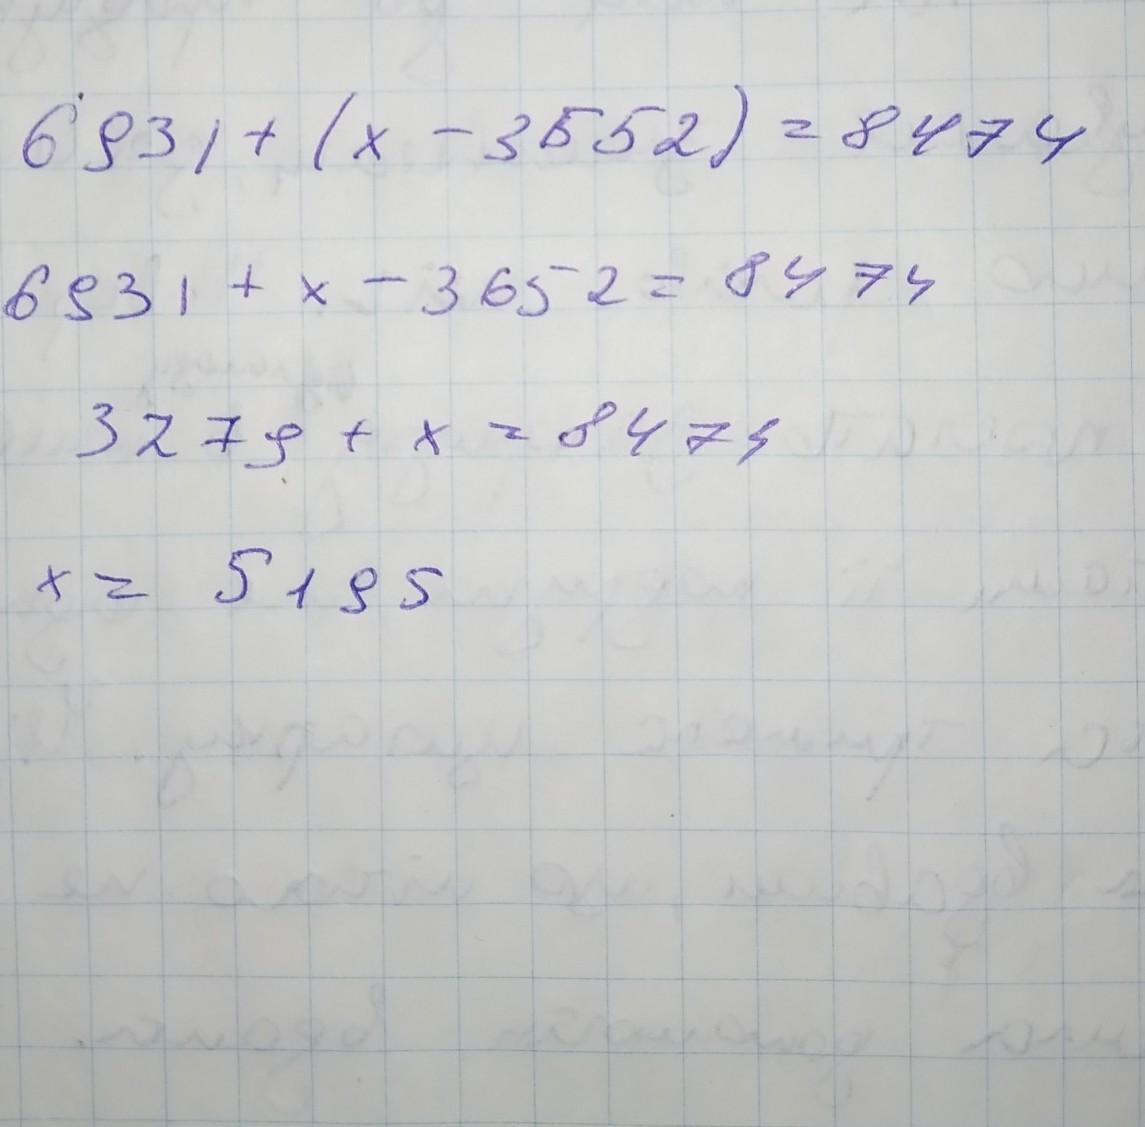 6931 + (x - 3552) = 8474
6931 + x - 3652 = 8474
3279 + x = 8474
x = 5195